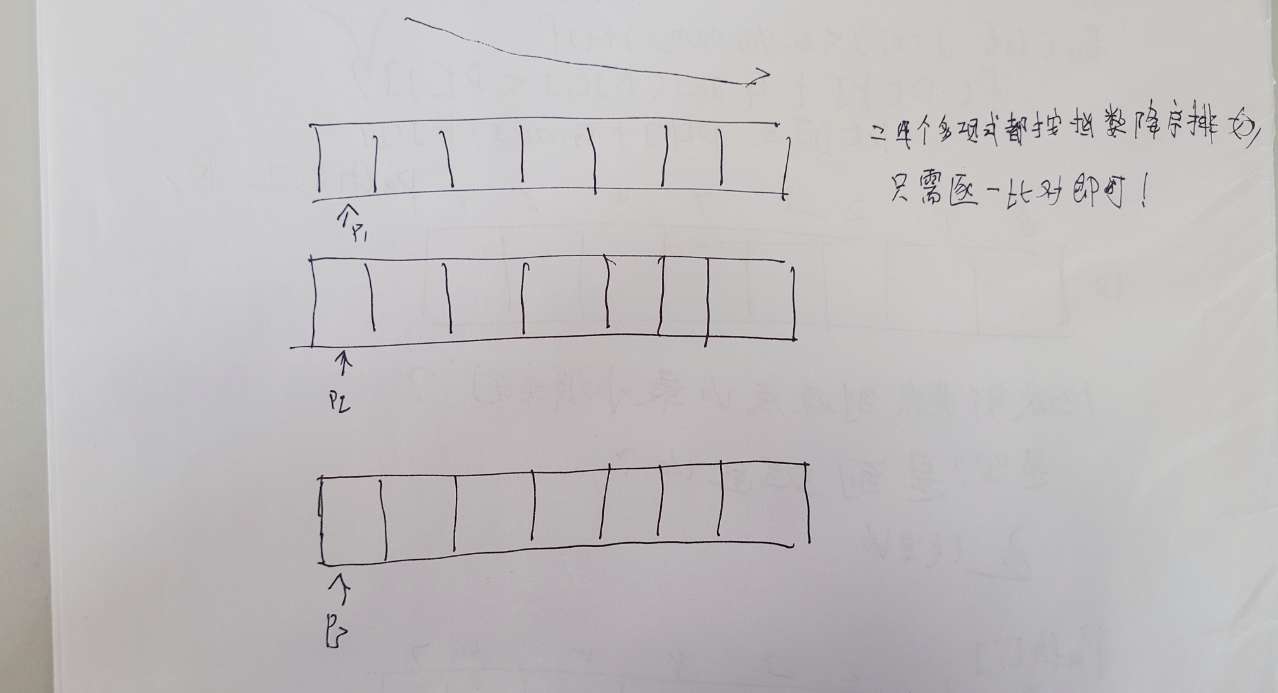 二个多项式都按指数降序排列,
只需逐一比对即可!
P1
P2
P3